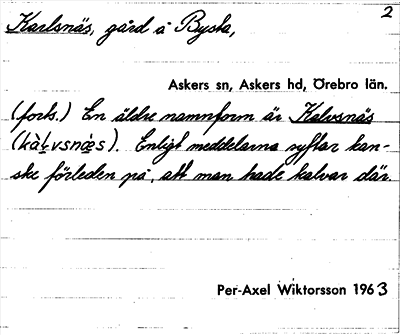 2
Karlsnäs, gård å Bysta,
Askers sn, Askers hd, Örebro län.
(forts.) En äldre namnform är Kalvsnäs
(kàḷvsnǽs). Enligt meddelarna syftar kan-
ske förleden på, att man hade kalvar där.
Per-Axel Wiktorsson 1963